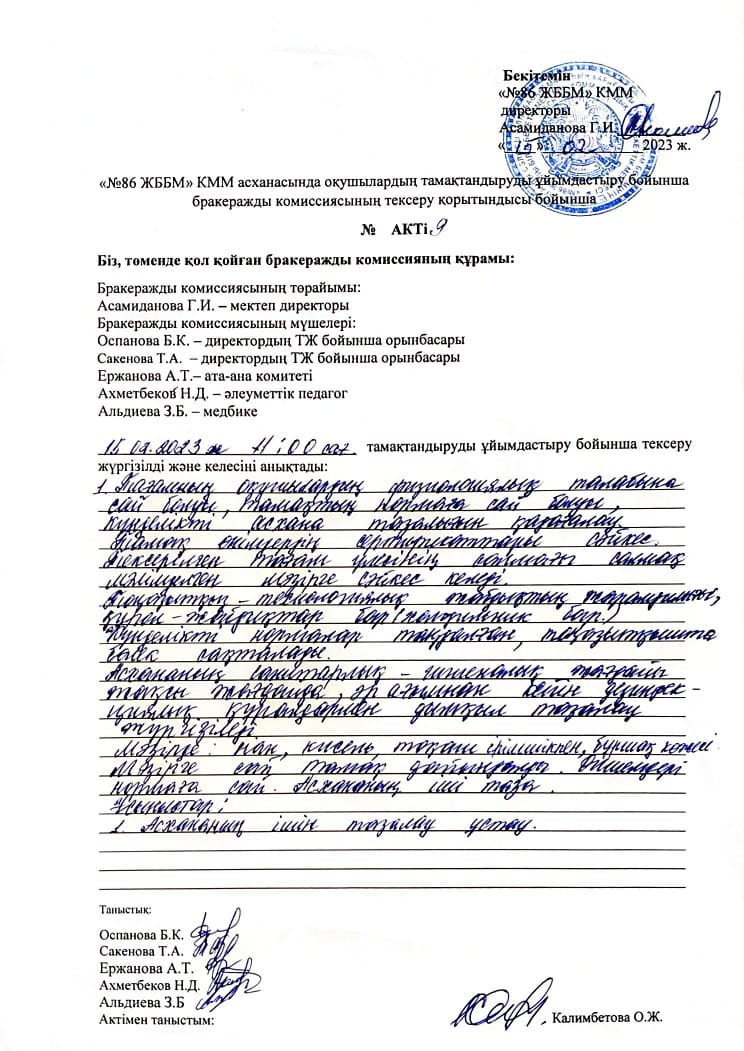 Бекітемін
«№86 ЖББМ» КММ
директоры
Асамиданова Г.И.
« 15 » 02 2023 ж.
«№86 ЖББМ» КММ асханасында оқушылардың тамақтандыруды ұйымдастыру бойынша
бракеражды комиссиясының тексеру қорытындысы бойынша
№ АКТі 9
Біз, төменде қол қойған бракеражды комиссияның құрамы:
Бракеражды комиссиясының төрайымы:
Асамиданова Г.И. – мектеп директоры
Бракеражды комиссиясының мүшелері:
Оспанова Б.К. – директордың ТЖ бойынша орынбасары
Сакенова Т.А. – директордың ТЖ бойынша орынбасары
Ержанова А.Т.– ата-ана комитеті
Ахметбеков Н.Д. – әлеуметтік педагог
Альдиева З.Б. – медбике
15.02.2023 ж 11:00 сағ. тамақтандыруды ұйымдастыру бойынша тексеру
жүргізілді және келесіні анықтады:
1. Тағамның оқушылардың физиологиялық талабына
сай болуы, тамақтың нормаға сай болуы,
күнделікті асхана тазалығын қадағалау.
Тамақ өнімдерінің сертификаттары сәйкес.
Тексерілген тағам үлесінің салмағы салмақ
мәзірге сәйкес келеді.
технологиялық
құрал-жабдықтар бар (холодильник бар.)
Күнделікті нормалар тоңазытқышта
бөлек сақталады.
Асхананың санитарлық - гигиеналық жағдайы
жақсы жағдайда, әр ағымнан кейін дезинфек-
циялық құралдармен дымқыл тазалау
жүргізіледі.
Мәзірде: нан, кисель, тоқаш ірімшікпен, бұршақ көже.
Мәзірге сай тамақ дайындалды.
нормаға сай. Асхананың іші таза.
Ұсыныстар:
1. Асхананың ішін тазалау ұстау.
Таныстық:
Оспанова Б.К.
Сакенова Т.А.
Ержанова А.Т.
Ахметбеков Н.Д.
Альдиева З.Б
Актімен таныстым:
Калимбетова О.Ж.